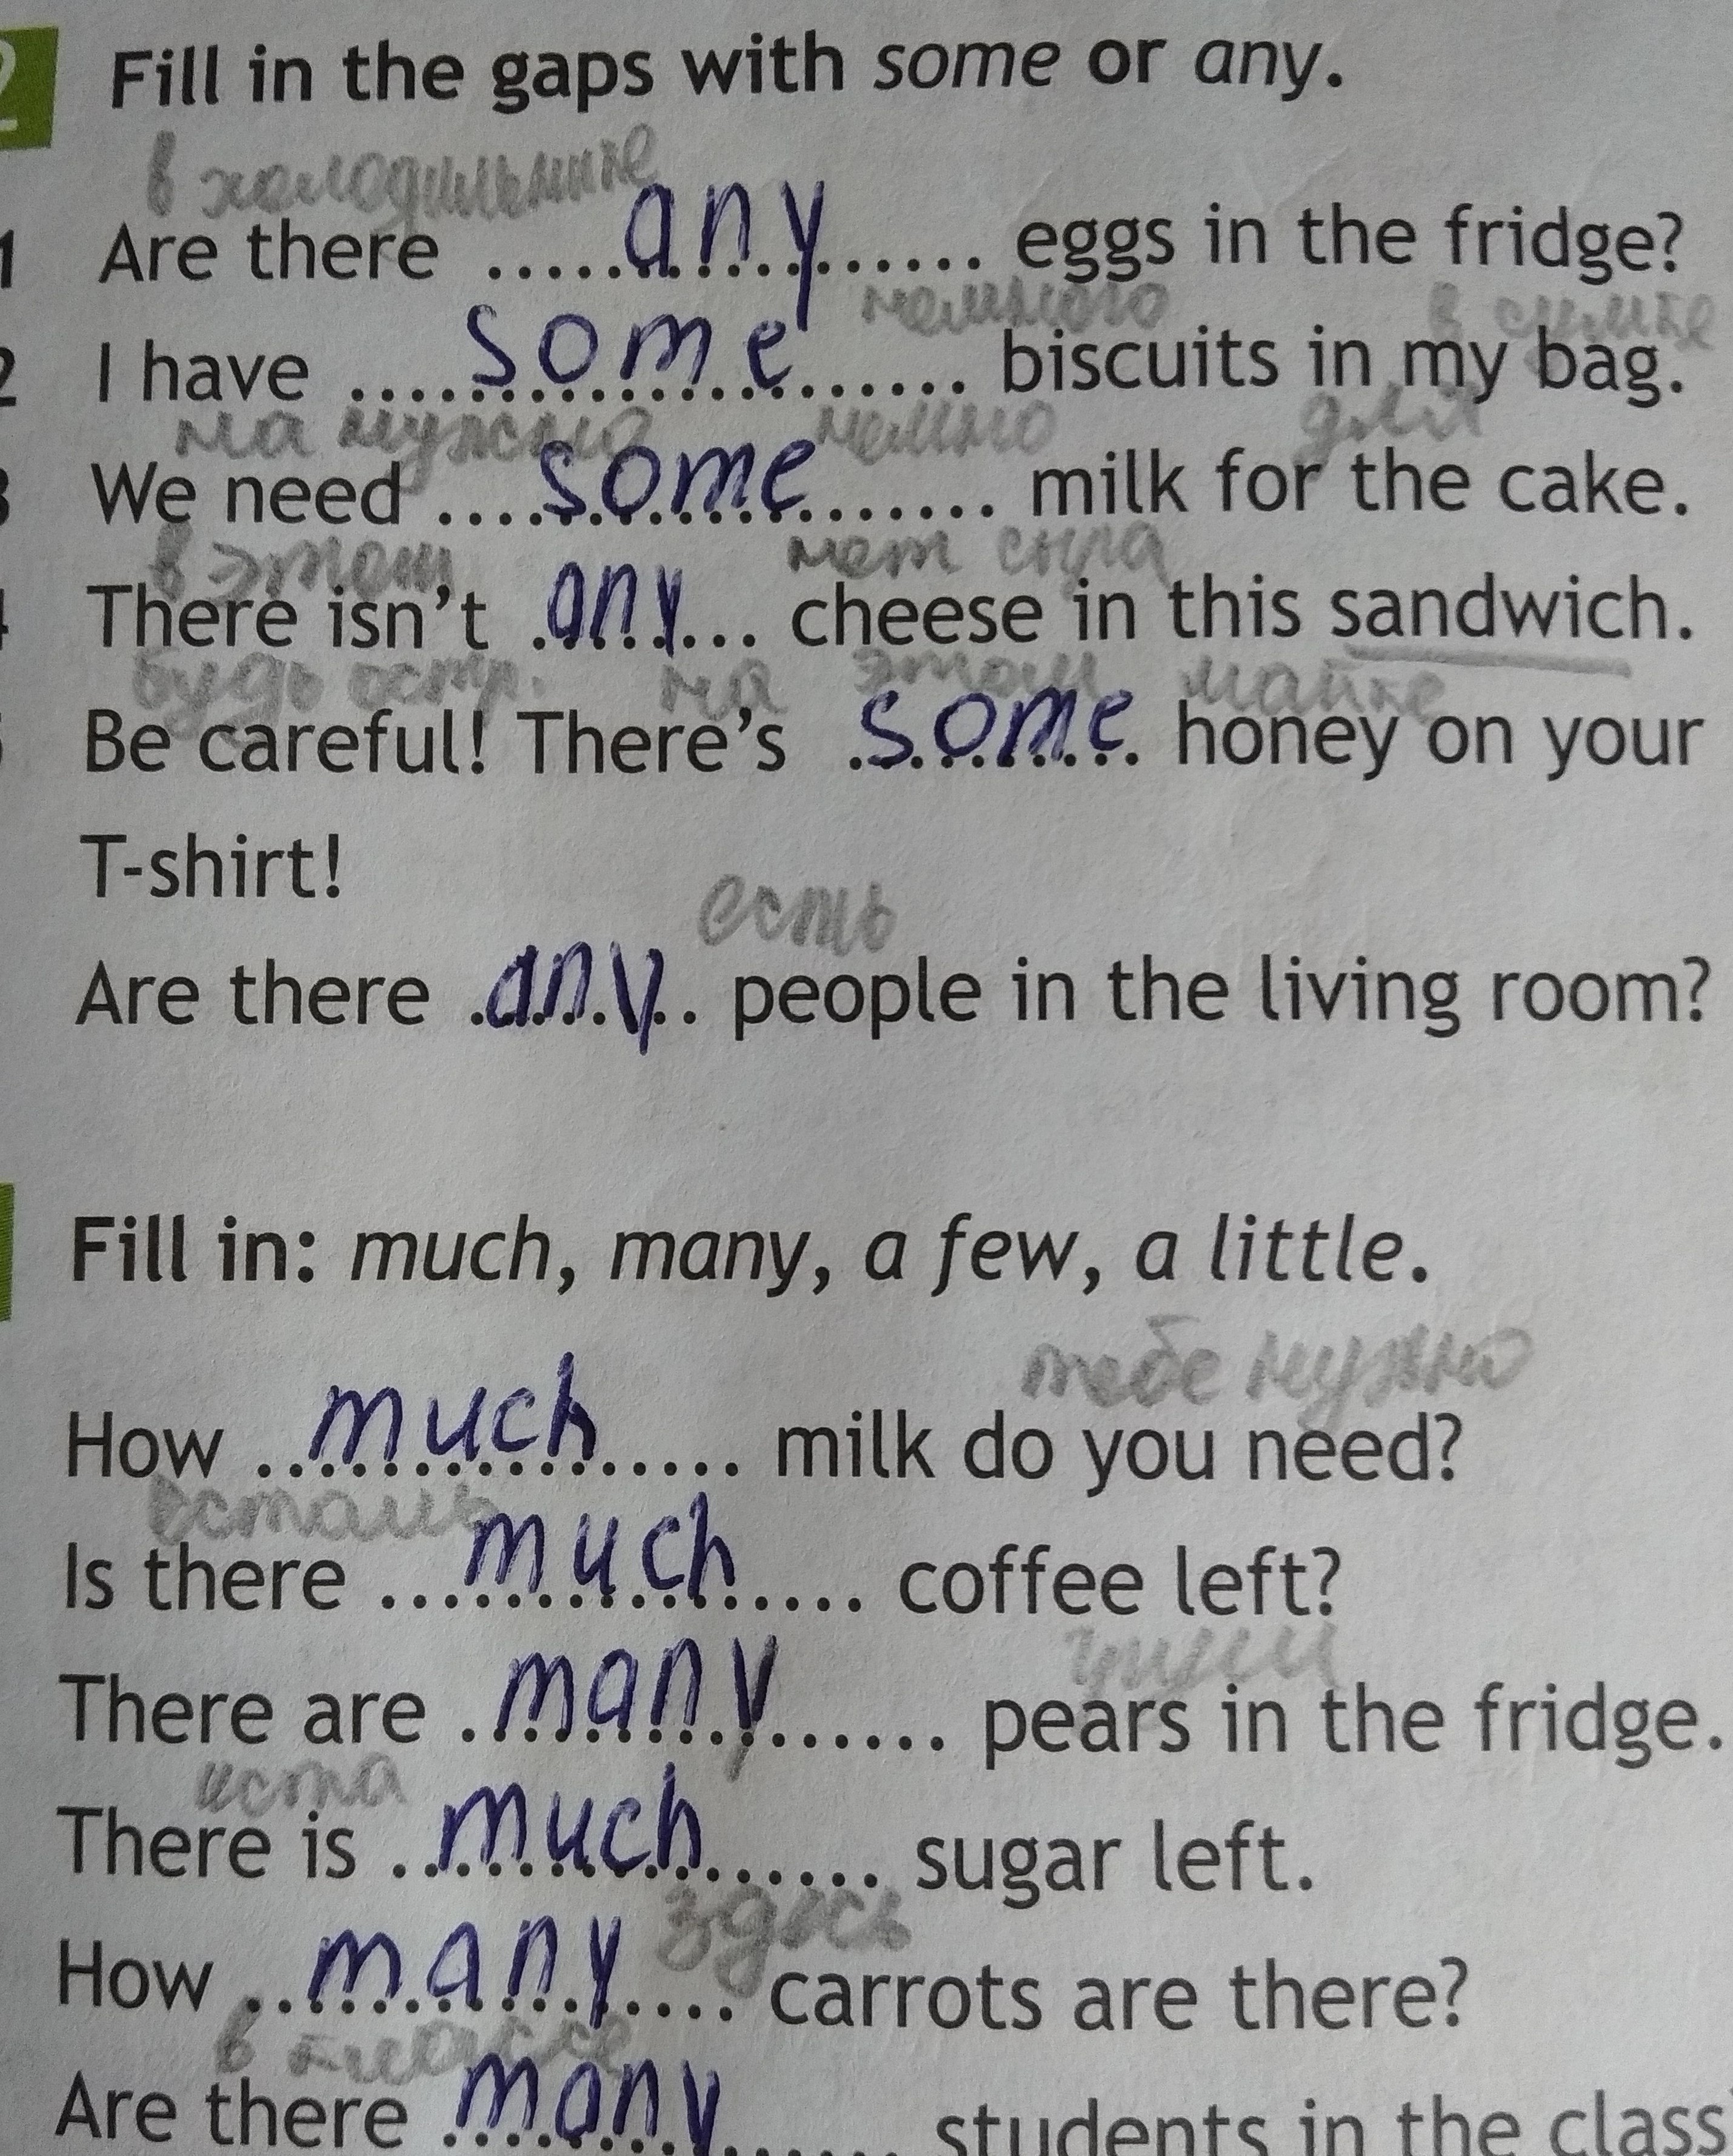 2 Fill in the gaps with some or any.
в холодильнике
1 Are there ..... any ..... eggs in the fridge?
немного в сумке
2 I have .... some .... biscuits in my bag.
на нужно для
3 We need .... some .... milk for the cake.
в этом нет сыра
4 There isn't any ... cheese in this sandwich.
будь остр. на этой майке
Be careful! There's some honey on your
T-shirt!
есть
Are there any .. people in the living room?
Fill in: much, many, a few, a little.
тебе нужно
How .. much .... milk do you need?
Is there ... much .... coffee left?
There are . many ...... pears in the fridge.
There is .. much ...... sugar left.
здесь
How .. many .... carrots are there?
в классе
Are there many ...... students in the class